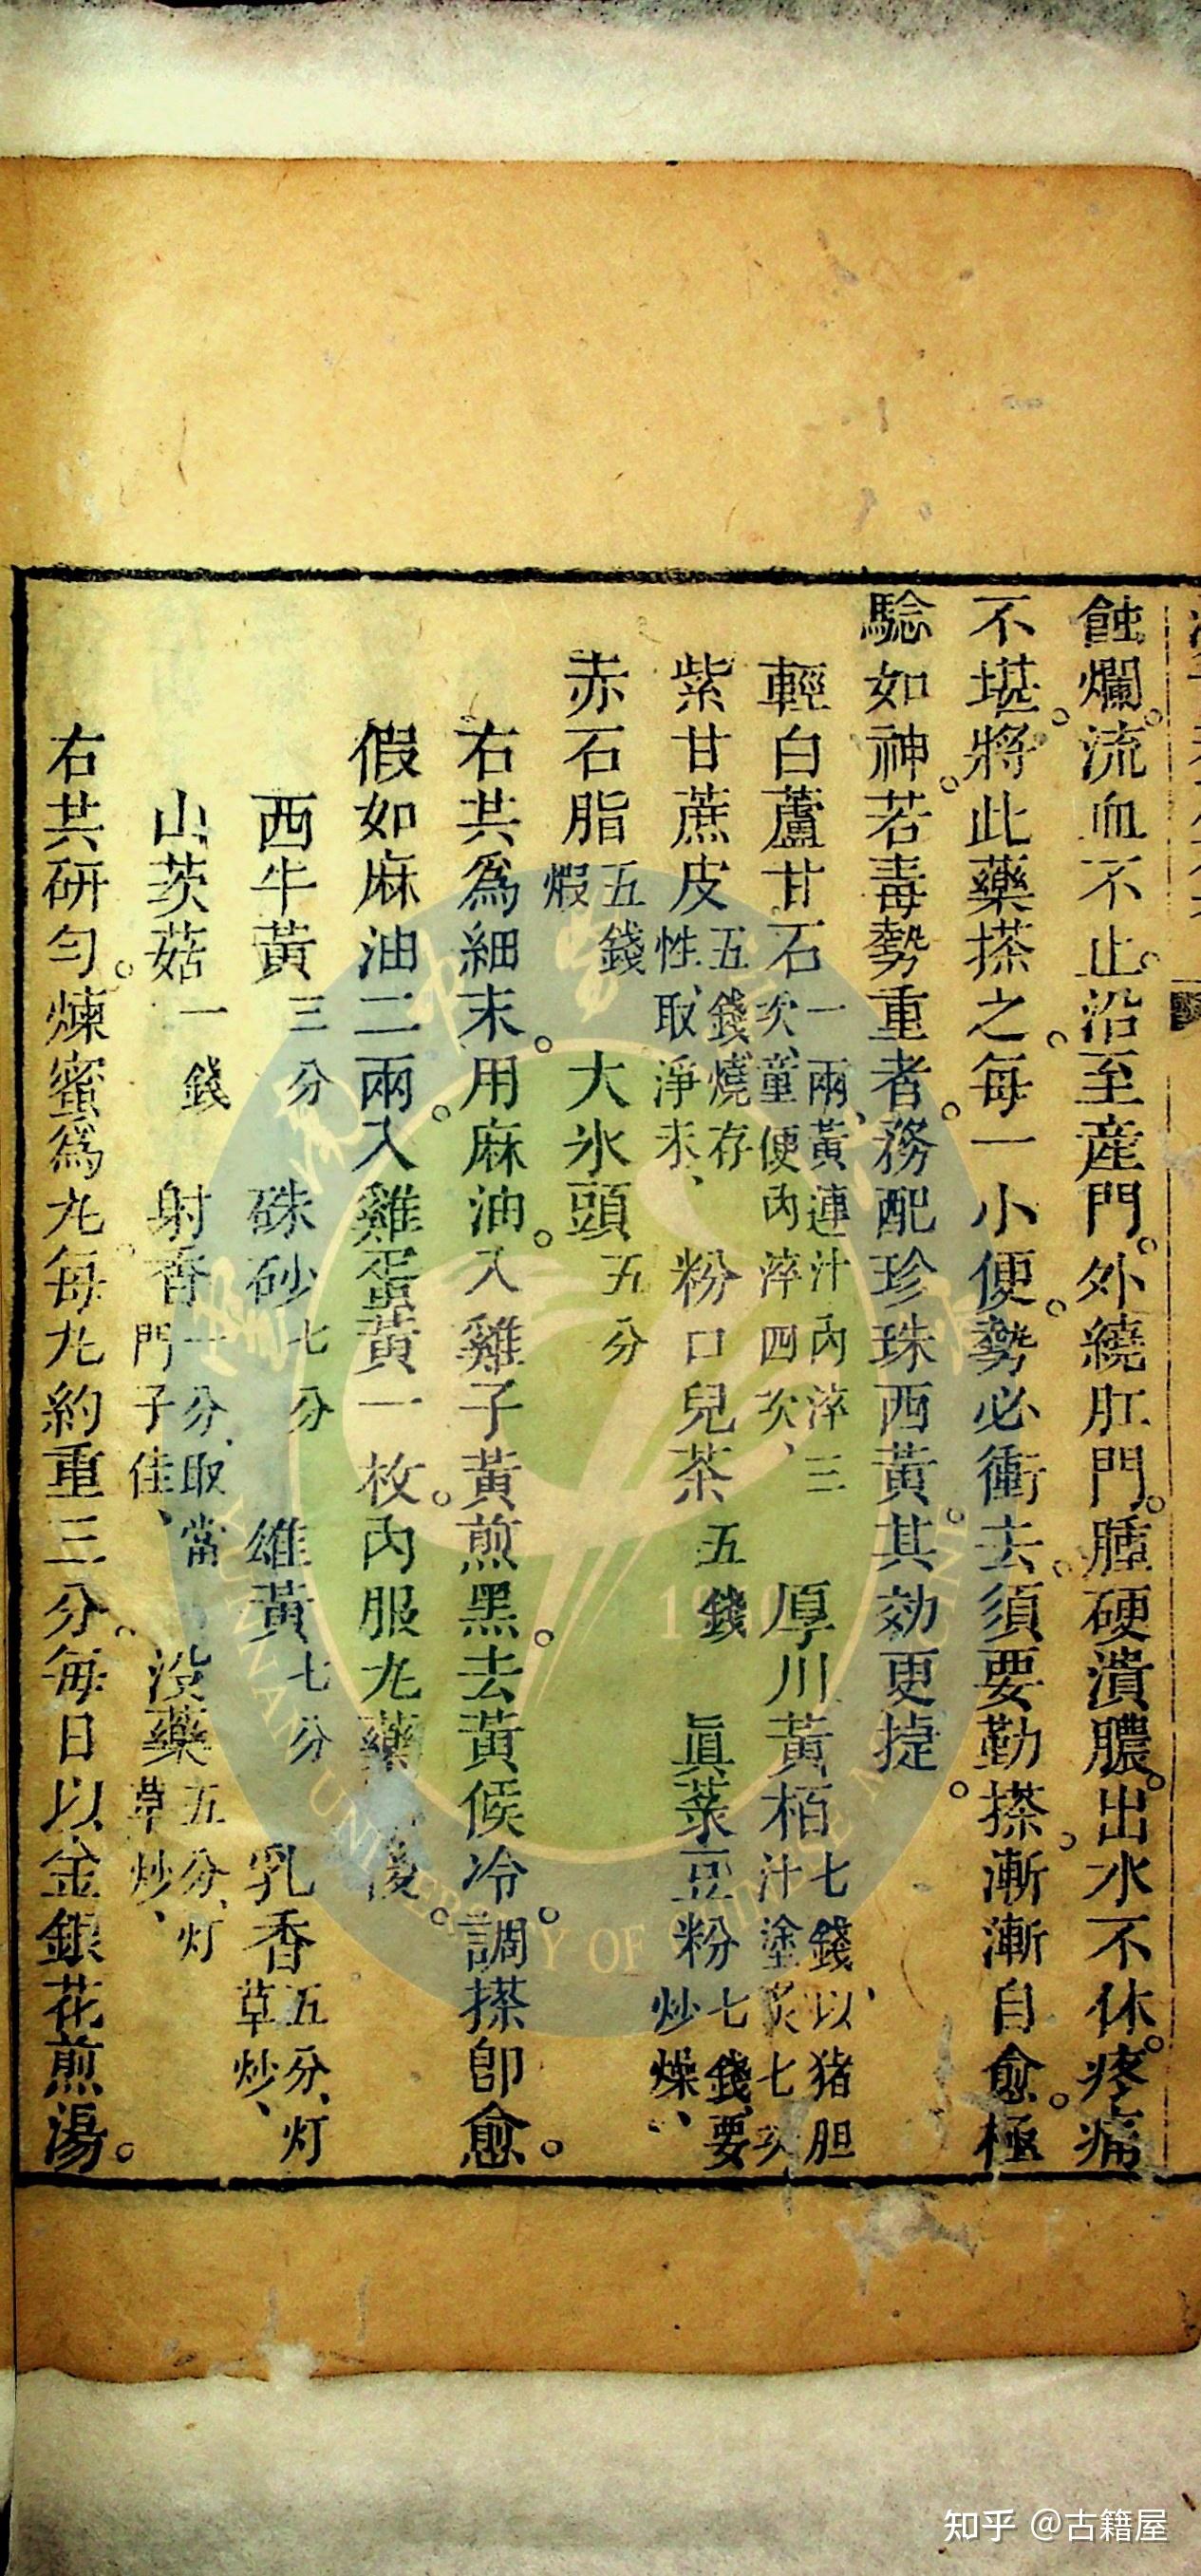 蝕爛。流血不止。沿至産門。外繞肛門。腫硬潰膿。出水不休。疼痛
不堪。將此藥搽之。每一小便。勢必衝去。須要勤搽。漸漸自愈。極
騐如神。若毒勢重者。務配珍珠西黃。其効更捷。
輕白蘆甘石一兩、黃連汁內淬三次、童便內淬四次、 厚川黃栢七錢、以猪胆汁塗炙七次
紫甘蔗皮五錢燒存性、取淨末、 粉口兒茶五錢 眞菉豆粉七錢、要炒燥、
赤石脂五錢煆 大氷頭五分
右共爲細末。用麻油。入雞子黃煎黑。去黃候冷。調搽卽愈。
假如麻油二兩。入雞蛋黃一枚。內服九藥後。
西牛黃三分 硃砂七分 雄黃七分 乳香五分、灯草炒、
山茨菇一錢 射香一分、取當門子佳、 没藥五分、灯草炒、
右共研勻。煉蜜爲九。每九約重三分。每日以金銀花煎湯。
知乎 @古籍屋
YUNNAN UNIVERSITY OF CHINESE MEDICINE